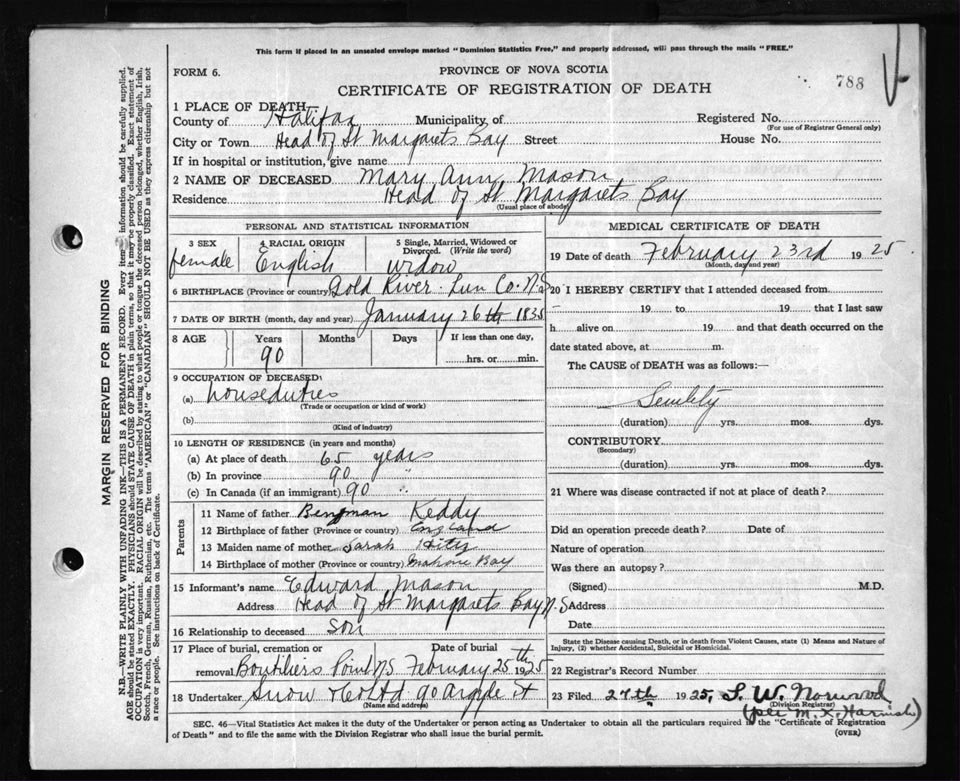 This form if placed in an unsealed envelope marked "Dominion Statistics Free," and properly addressed, will pass through the mails "FREE."
FORM 6.
PROVINCE OF NOVA SCOTIA
788
CERTIFICATE OF REGISTRATION OF DEATH
1 PLACE OF DEATH
County of Halifax Municipality, of Registered No.
(For use of Registrar General only)
City or Town Head of St Margarets Bay Street House No.
If in hospital or institution, give name
2 NAME OF DECEASED Mary Ann Mason
Residence Head of St Margarets Bay
(Usual place of abode)
PERSONAL AND STATISTICAL INFORMATION
3 SEX 4 RACIAL ORIGIN 5 Single, Married, Widowed or Divorced. (Write the word)
female English widow
6 BIRTHPLACE (Province or country) Gold River Lun Co. N.S
7 DATE OF BIRTH (month, day and year) January 26th 1835
8 AGE Years Months Days If less than one day,
90 hrs. or min.
9 OCCUPATION OF DECEASED:
(a) houseduties
(Trade or occupation or kind of work)
(b)
(Kind of industry)
10 LENGTH OF RESIDENCE (in years and months)
(a) At place of death 65 years
(b) In province 90 "
(c) In Canada (if an immigrant) 90 "
Parents
11 Name of father Bengman Keddy
12 Birthplace of father (Province or country) England
13 Maiden name of mother Sarah Hitz
14 Birthplace of mother (Province or country) Mahone Bay
15 Informant's name Edward Mason
Address Head of St Margarets Bay N.S
16 Relationship to deceased son
17 Place of burial, cremation or removal Date of burial
Boutiliers Point NS February 25th 1925
18 Undertaker Snow & Co Ltd 90 Argyle St
(Name and address)
MEDICAL CERTIFICATE OF DEATH
19 Date of death February 23rd 1925
(Month, day and year)
20 I HEREBY CERTIFY that I attended deceased from
19 to 19 that I last saw
h alive on 19 and that death occurred on the
date stated above, at m.
The CAUSE of DEATH was as follows:—
Senility
(duration) yrs. mos. dys.
CONTRIBUTORY
(Secondary)
(duration) yrs. mos. dys.
21 Where was disease contracted if not at place of death?
Did an operation precede death? Date of
Nature of operation
Was there an autopsy?
(Signed) M.D.
Address
Date
State the Disease causing Death, or in death from Violent Causes, state (1) Means and Nature of Injury, (2) whether Accidental, Suicidal or Homicidal.
22 Registrar's Record Number
23 Filed 27th 1925, S. W. Norwood
(Division Registrar)
(per M. X. Harnish)
SEC. 46—Vital Statistics Act makes it the duty of the Undertaker or person acting as Undertaker to obtain all the particulars required in the "Certificate of Registration
of Death" and to file the same with the Division Registrar who shall issue the burial permit.
(OVER)
MARGIN RESERVED FOR BINDING
N.B.—WRITE PLAINLY WITH UNFADING INK—THIS IS A PERMANENT RECORD. Every item of information should be carefully supplied.
AGE should be stated EXACTLY. PHYSICIANS should STATE CAUSE OF DEATH in plain terms, so that it may be properly classified. Exact statement of
OCCUPATION is very important. RACIAL ORIGIN will be described by stating to what people or tongue the deceased person belonged, whether English, Irish,
Scotch, French, German, Russian, Ruthenian, etc. The terms "AMERICAN" or "CANADIAN" SHOULD NOT BE USED as they express citizenship but not
a race or people. See instructions on back of Certificate.